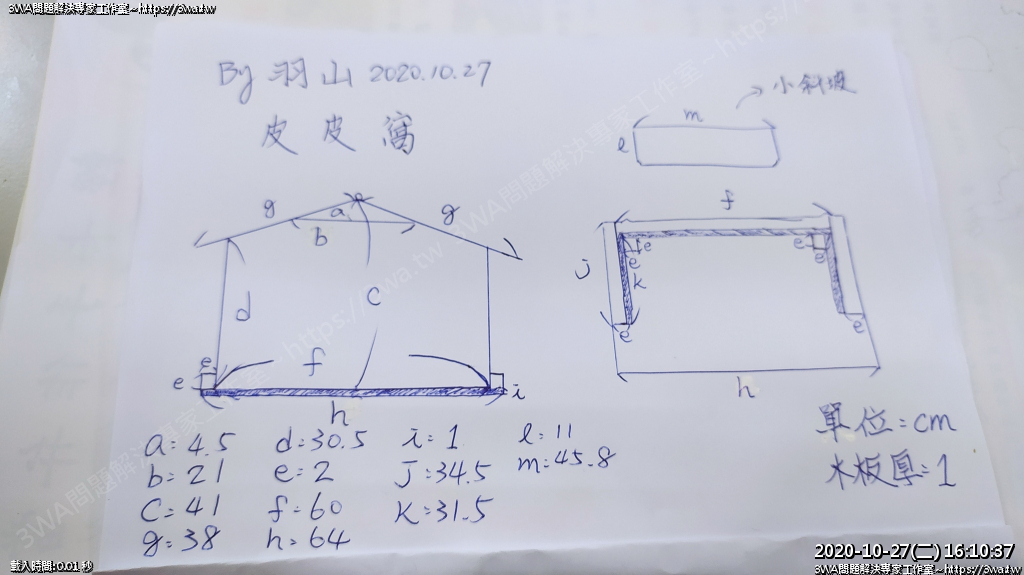 3WA問題解決專家工作室~https://3wa.tw
By 羽山 2020.10.27
皮皮窩
小斜坡
m
l
f
g
a
g
b
e
e
e
e
j
k
d
c
e
e
e
f
e
i
h
h
a=4.5 d=30.5 i=1 l=11
b=21 e=2 j=34.5 m=45.8
c=41 f=60 k=31.5
g=38 h=64
單位=cm
木板厚=1
2020-10-27(二) 16:10:37
載入時間:0.01 秒
3WA問題解決專家工作室~https://3wa.tw